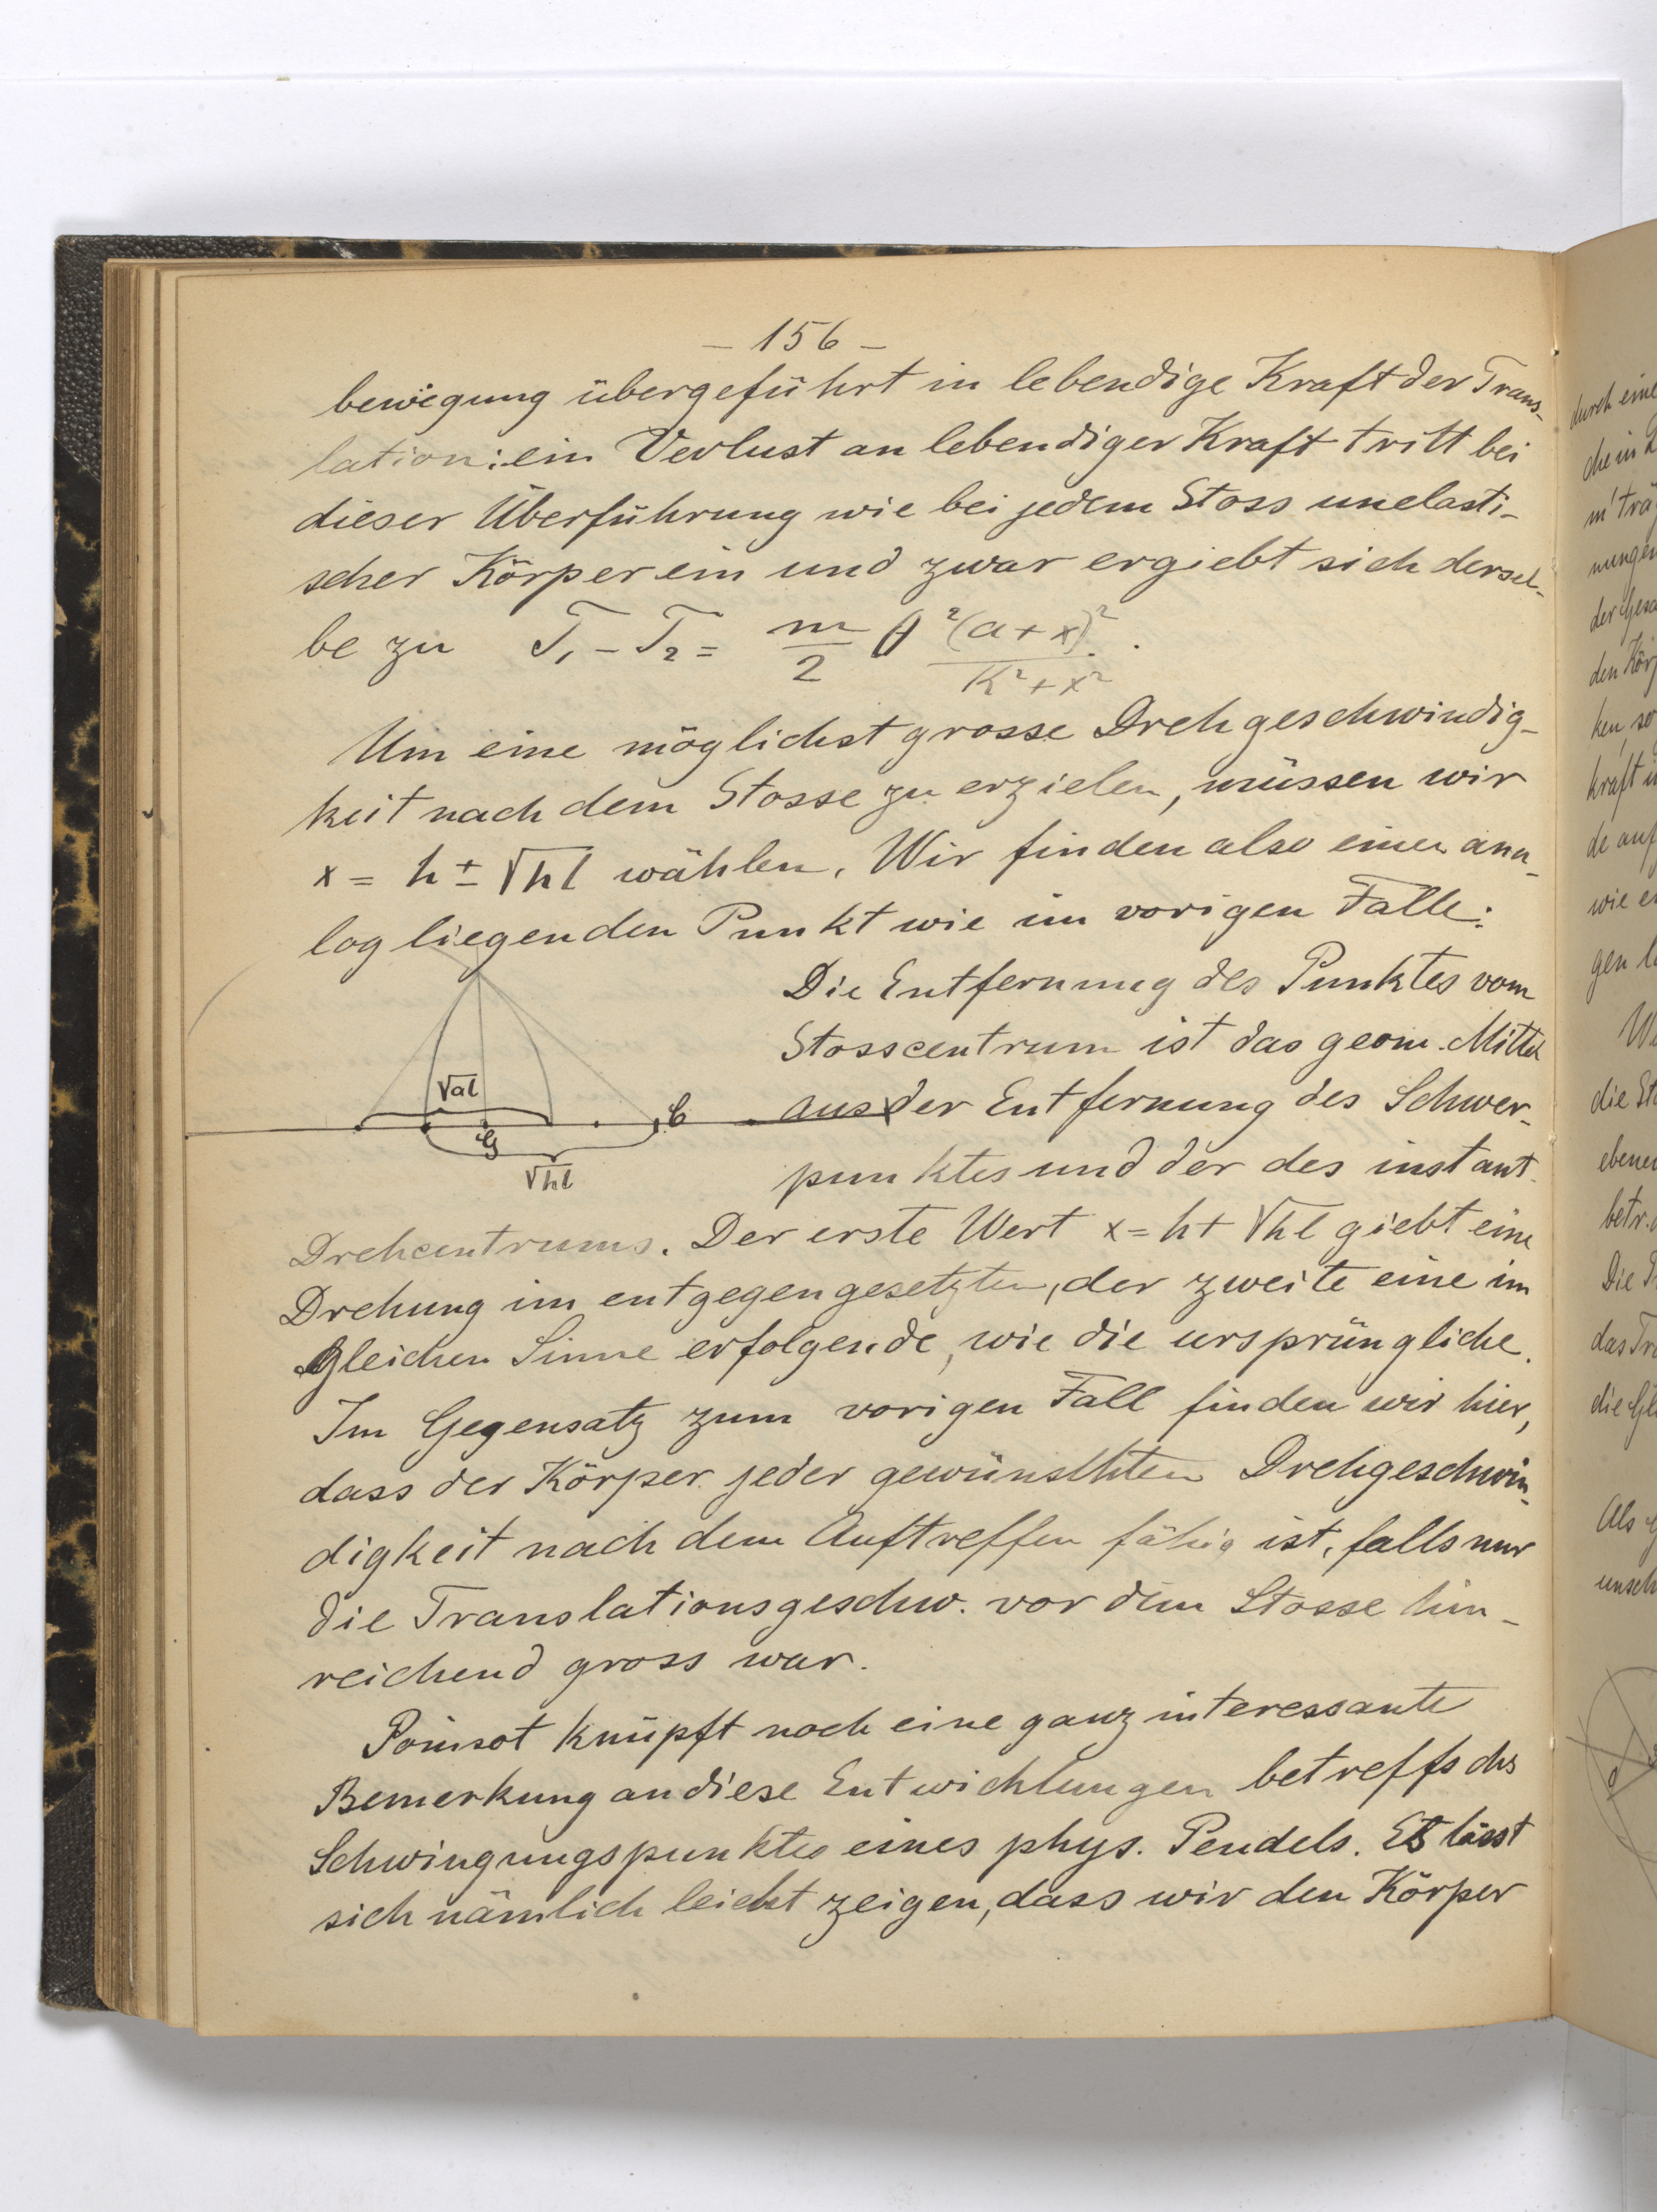 – 156 –
bewegung übergeführt in lebendige Kraft der Trans-
lation: ein Verlust an lebendiger Kraft tritt bei
dieser Überführung wie bei jedem Stoss unelasti-
scher Körper ein und zwar ergiebt sich dersel-
be zu T₁ – T₂ = m/2 θ² (a + x)²/(K² + x²).
Um eine möglichst grosse Drehgeschwindig-
keit nach dem Stosse zu erzielen, müssen wir
x = h ± √hl wählen. Wir finden also einen ana-
log liegenden Punkt wie im vorigen Falle:
Die Entfernung des Punktes vom
Stosscentrum ist das geom. Mittel
aus der Entfernung des Schwer-
punktes und der des instant.
√al
G
C
√hl
Drehcentrums. Der erste Wert x = h + √hl giebt eine
Drehung im entgegengesetzten, der zweite eine im
gleichen Sinne erfolgende, wie die ursprüngliche.
Im Gegensatz zum vorigen Fall finden wir hier,
dass der Körper jeder gewünschten Drehgeschwin-
digkeit nach dem Auftreffen fähig ist, falls nur
die Translationsgeschw. vor dem Stosse hin-
reichend gross war.
Poinsot knüpft noch eine ganz interessante
Bemerkung an diese Entwicklungen betreffs des
Schwingungspunktes eines phys. Pendels. Es lässt
sich nämlich leicht zeigen, dass wir den Körper
durch eine
che in
nungen
den
ken, so
kraft
de auf
wie
gen
die
das
die
Als